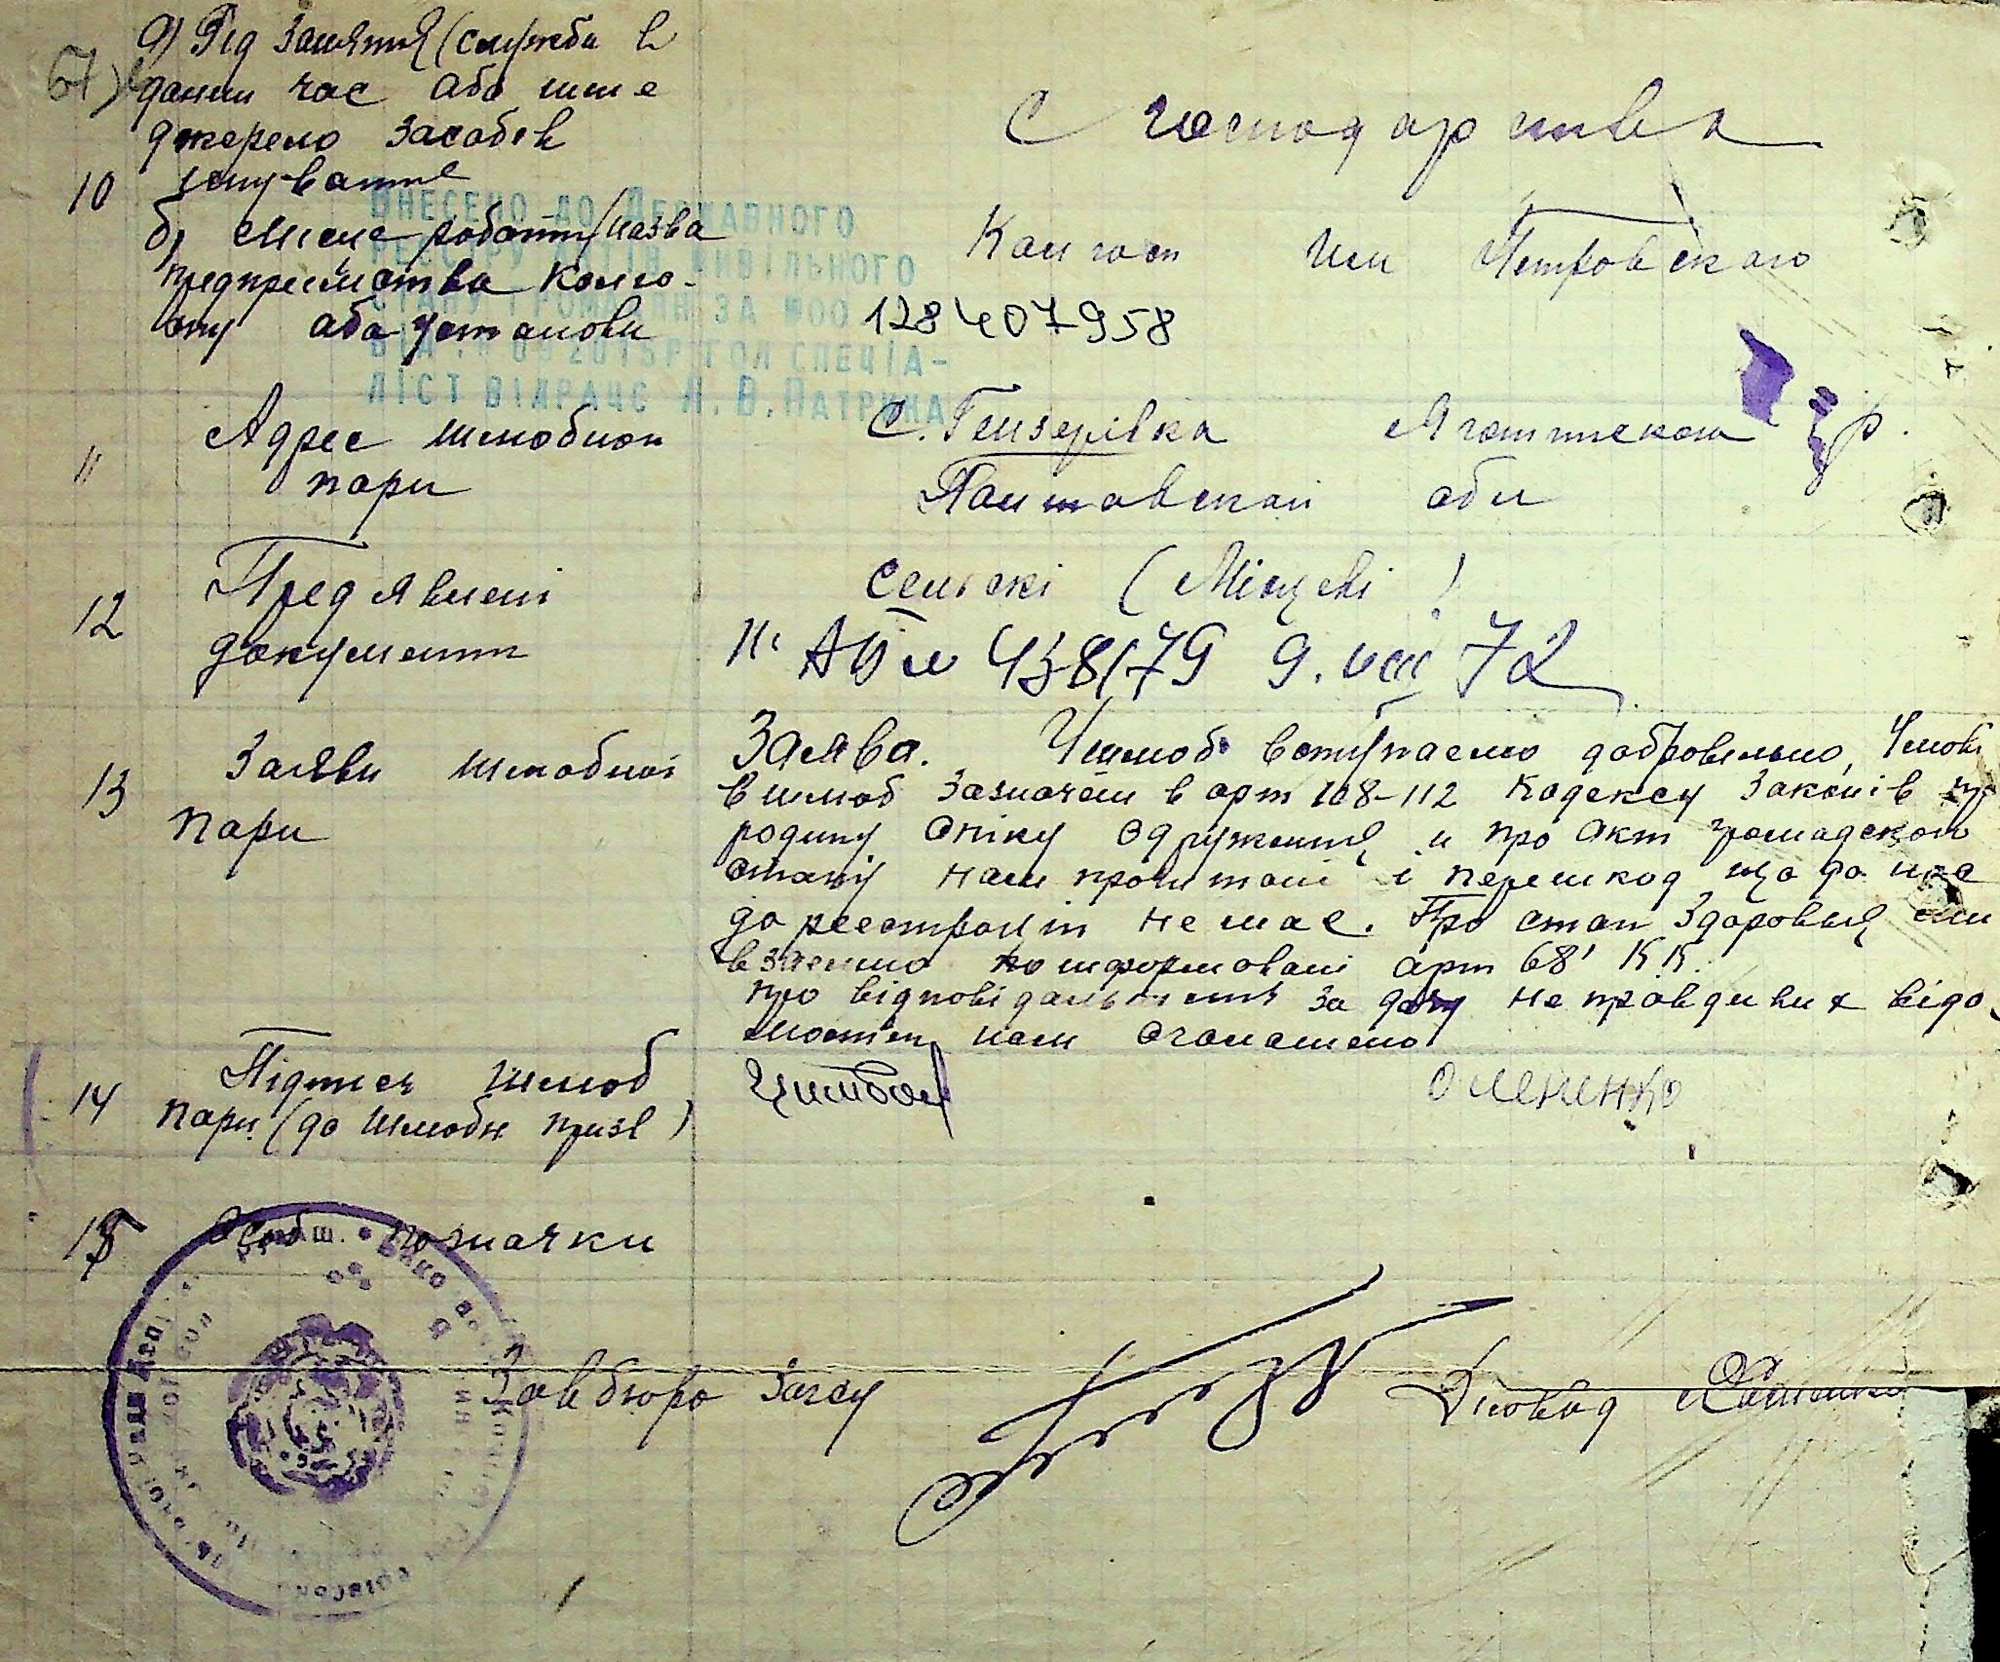 а) Рід заняття (служба в
67)
даний час або інше
джерело засобів
10 існування
б) Місце роботи (назва
предприємства колго-
спу або установи
С господарства
Колгосп Им Петровского
128407958
ВНЕСЕНО ДО ДЕРЖАВНОГО
РЕЄСТРУ АКТІВ ЦИВІЛЬНОГО
СТАНУ ГРОМАДЯН ЗА №00
2015Р ГОЛ СПЕЦІА-
ЛІСТ ВІДРАЦС Л. В. ПАТРИКА
11 Адрес шлюбной
пари
С. Гензерівка Яготинского р.
Полтавской обл
12 Предявлені
документи
Сельскі (Місцеві)
438179 9. VIII 72
13 Заяви шлюбної
пари
Заява. У шлюб вступаемо добровільно, Умови
в шлюб зазначені в арт 108-112 Кодексу Законів пр
родину опіку одруження и про Акт громадского
стану нам прочитані і перешкод що до
до реестрації не мае. Про стан здоровья ми
взаемно поінформовані арт 68' К.К.
про відповідальність за дачу не правдивих відо-
мостей нам оголошено
14 Підписи шлюб
пари (до шлюбн прізв)
Цимбал
Олененко
15 Особ позначки
Зав бюро Загсу
Діловод